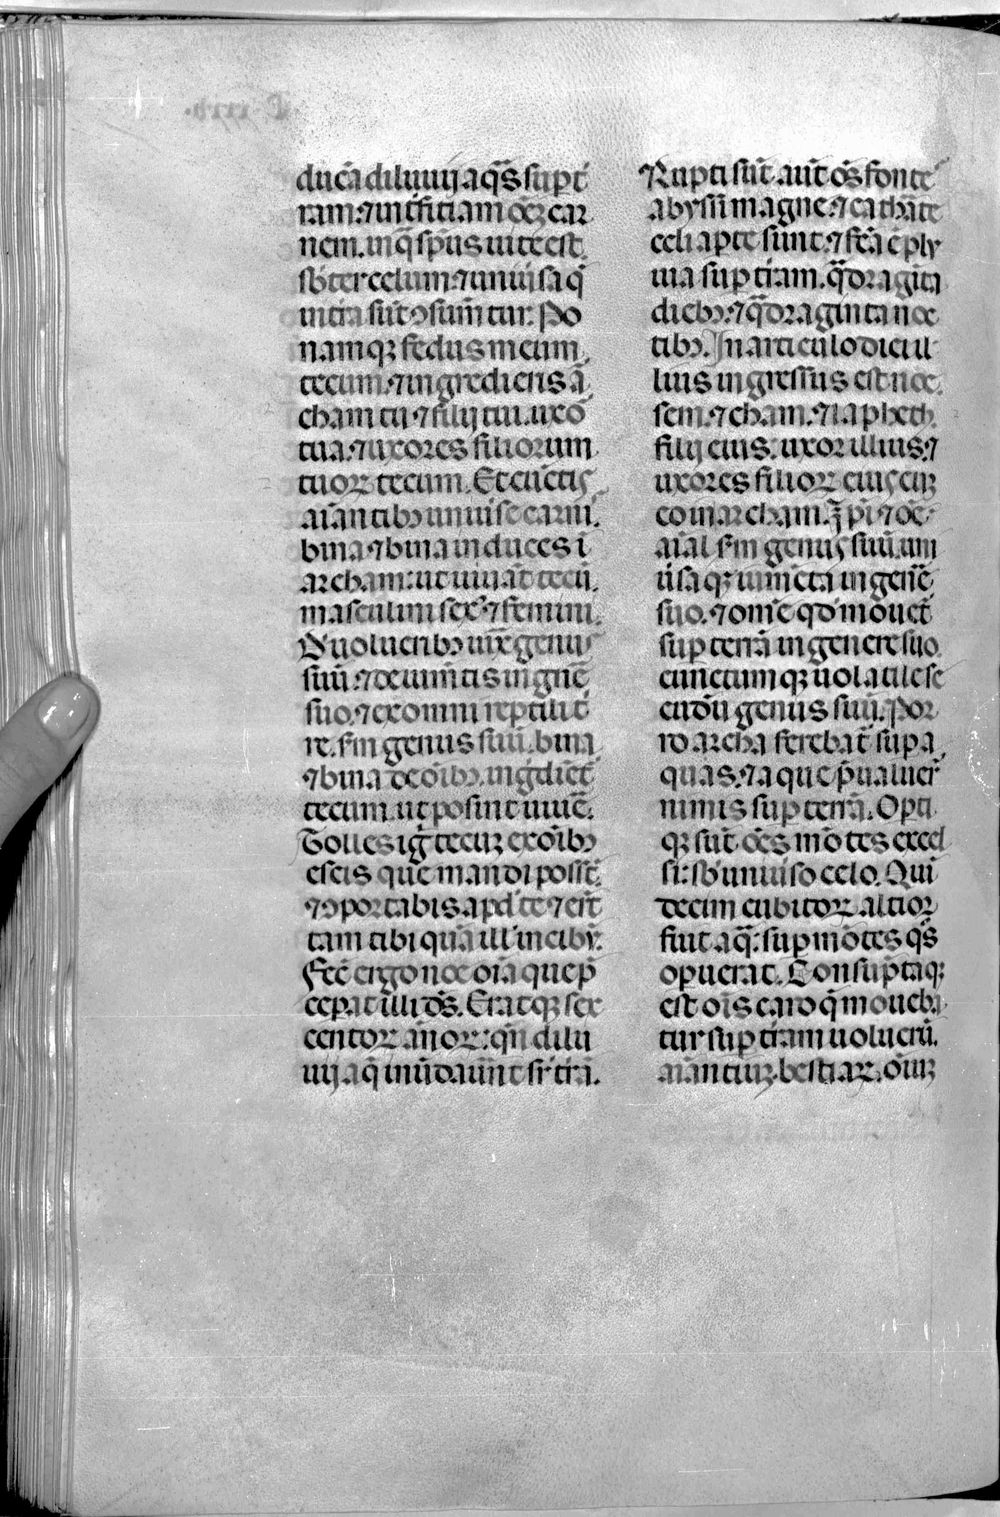 ducā diluuij aq̄s suꝑ t̄
ram. ⁊ int̄fitiam oēꝫ car
nem. in q̄ sp̄us uite est.
sb̄ter celum. ⁊ uniu̇sa q̄
in tr̄a sūt ↄsum̄tur. Po
namqꝫ fedus meum
tecum. ⁊ ingrediens ā
cham tu ⁊ filij tui. uxō
tua. ⁊ uxores filiorum
tuoꝝ tecum. Et cūctis
aīantibꝫ uniu̇se carni
bina ⁊ bina induces ī
archam: ut uiuāt tecū.
masculum sex⁹ ⁊ femini.
D' uolucribꝫ iux̄ genus
suū. ⁊ de iumētis in gn̄e
suo. ⁊ ex omni reptili t̄
re. scḋm genus suū. bina
⁊ bina de oībꝫ. ingdiēt̄
tecum. ut possint uiue̅.
Tolles ig̊ tecuꝫ ex oībꝫ
escis que mandi possūt.
⁊ ↄportabis apd' te ⁊ erūt
tam tibi quā ill' in cibū.
Fec̄ ergo noe oīa que p̄
ceꝑat illi ds̄. Eratqꝫ sex
centoꝝ ānoꝝ: qn̄ dilu
uij aq̄ inūdauer̄nt sr̄ tr̄ā.
Rupti sūt aūt oēs fonte̅
abyssi magne. ⁊ catharāte
celi aꝑte sunt. ⁊ fc̄a ē plu
uia suꝑ tr̄am. q̄draginta
diebꝫ. ⁊ q̄draginta noc
tibꝫ. In articulo diei il
lius ingressus est noe.
sem. ⁊ cham. ⁊ iapheth.
filij eius: uxor illius. ⁊
uxores filioꝝ eius cuꝫ
eo in archam. ip̄i ⁊ oē
aīal scḋm genus suū. uni
u̇saqꝫ iumēta in gene̅
suo. ⁊ om̄e qḋ mouet̄
suꝑ terrā in genere suo.
cunctumqꝫ uolatile se
cūdū genus suū. Por
ro archa ferebat̄ suꝑ a
quas. ⁊ aque p̄ualuer̄
nimis suꝑ terrā. Opti
qꝫ sūt oēs mōtes excel
si: sb' uniu̇so celo. Qui
decim cubitoꝝ altior
fuit aq̄: suꝑ mōtes q̄s
oꝑuerat. Consūptaqꝫ
est oīs caro q̄ moueba
tur suꝑ tr̄am uolucrū.
aīantiuꝫ. bestiaꝝ. oīuꝫ